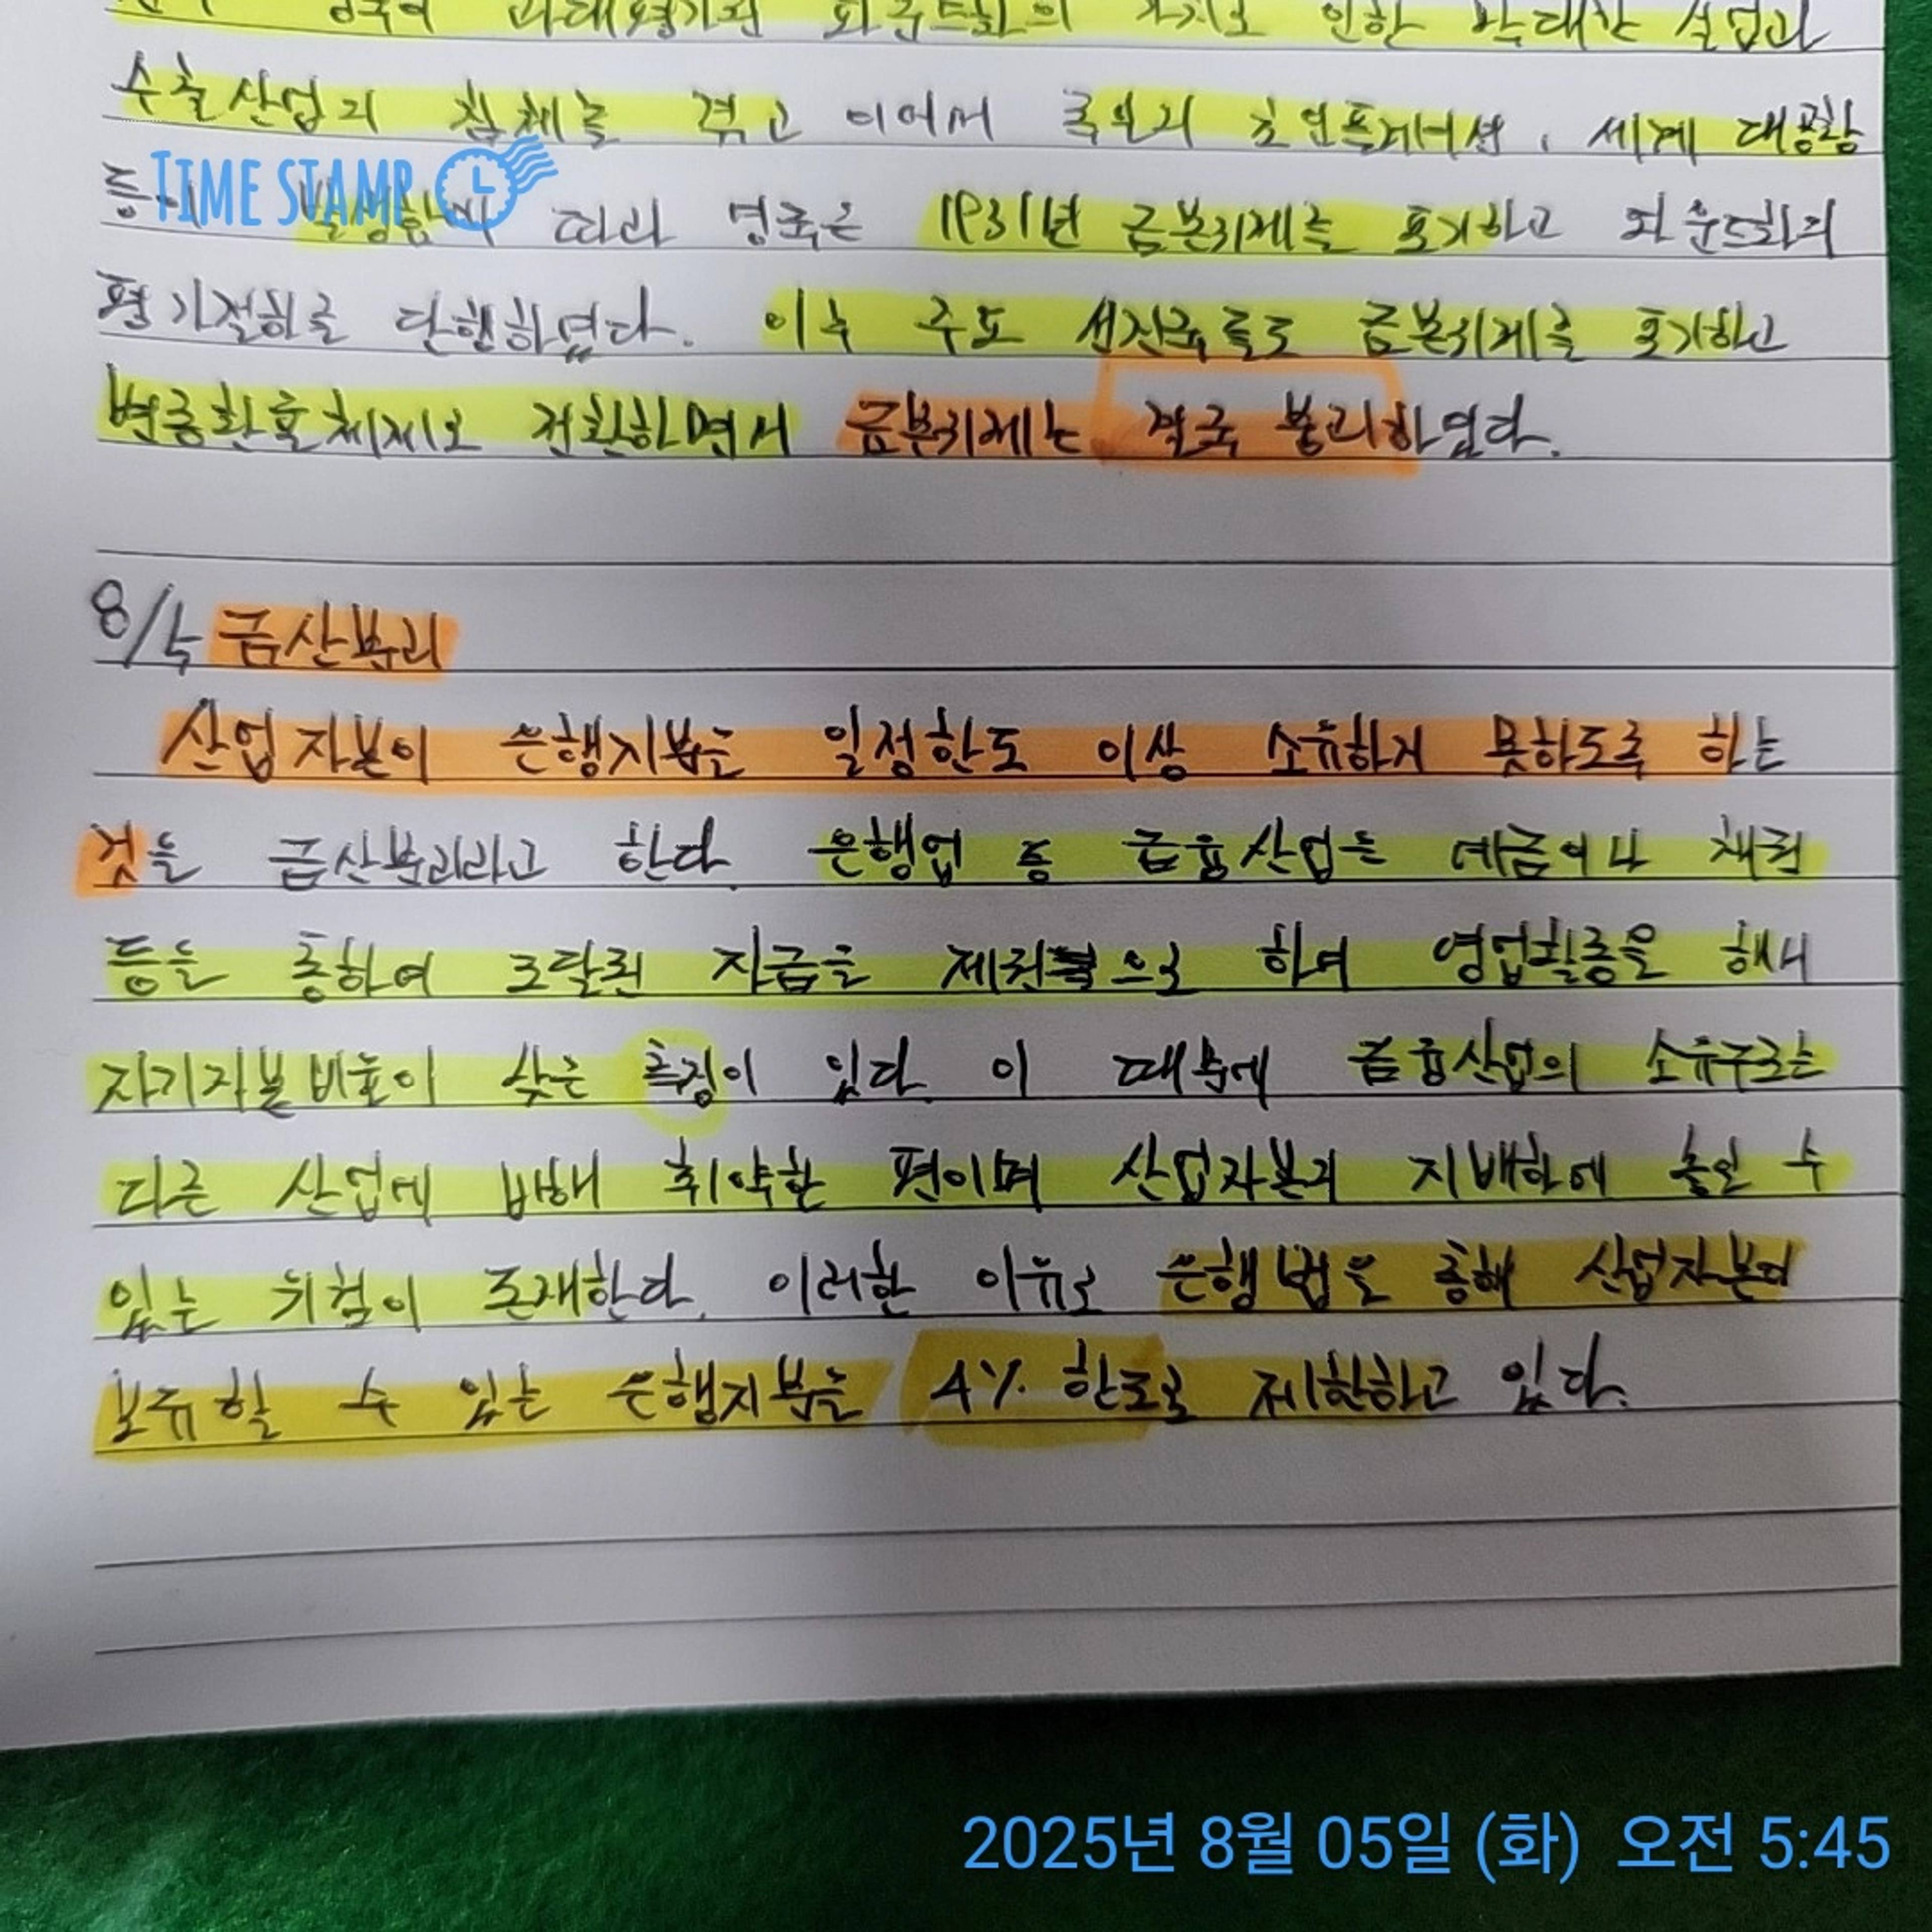 영국이 과대평가된 파운드화의 가치로 인한 막대한 실업과
수출산업의 침체를 겪고 이어서 독일의 초인플레이션, 세계 대공황
TIME STAMP
등이 발생함에 따라 영국은 1931년 금본위제를 포기하고 파운드화의
평가절하를 단행하였다. 이후 주요 선진국들도 금본위제를 포기하고
변동환율체제로 전환하면서 금본위제는 결국 붕괴하였다.
8/5 금산분리
산업자본이 은행지분을 일정한도 이상 소유하지 못하도록 하는
것을 금산분리라고 한다. 은행업 등 금융산업은 예금이나 채권
등을 통하여 조달된 자금을 재원으로 하여 영업활동을 해서
자기자본비율이 낮은 특징이 있다. 이 때문에 금융산업의 소유구조는
다른 산업에 비해 취약한 편이며 산업자본의 지배하에 놓일 수
있는 위험이 존재한다. 이러한 이유로 은행법을 통해 산업자본이
보유할 수 있는 은행지분을 4% 한도로 제한하고 있다.
2025년 8월 05일 (화) 오전 5:45